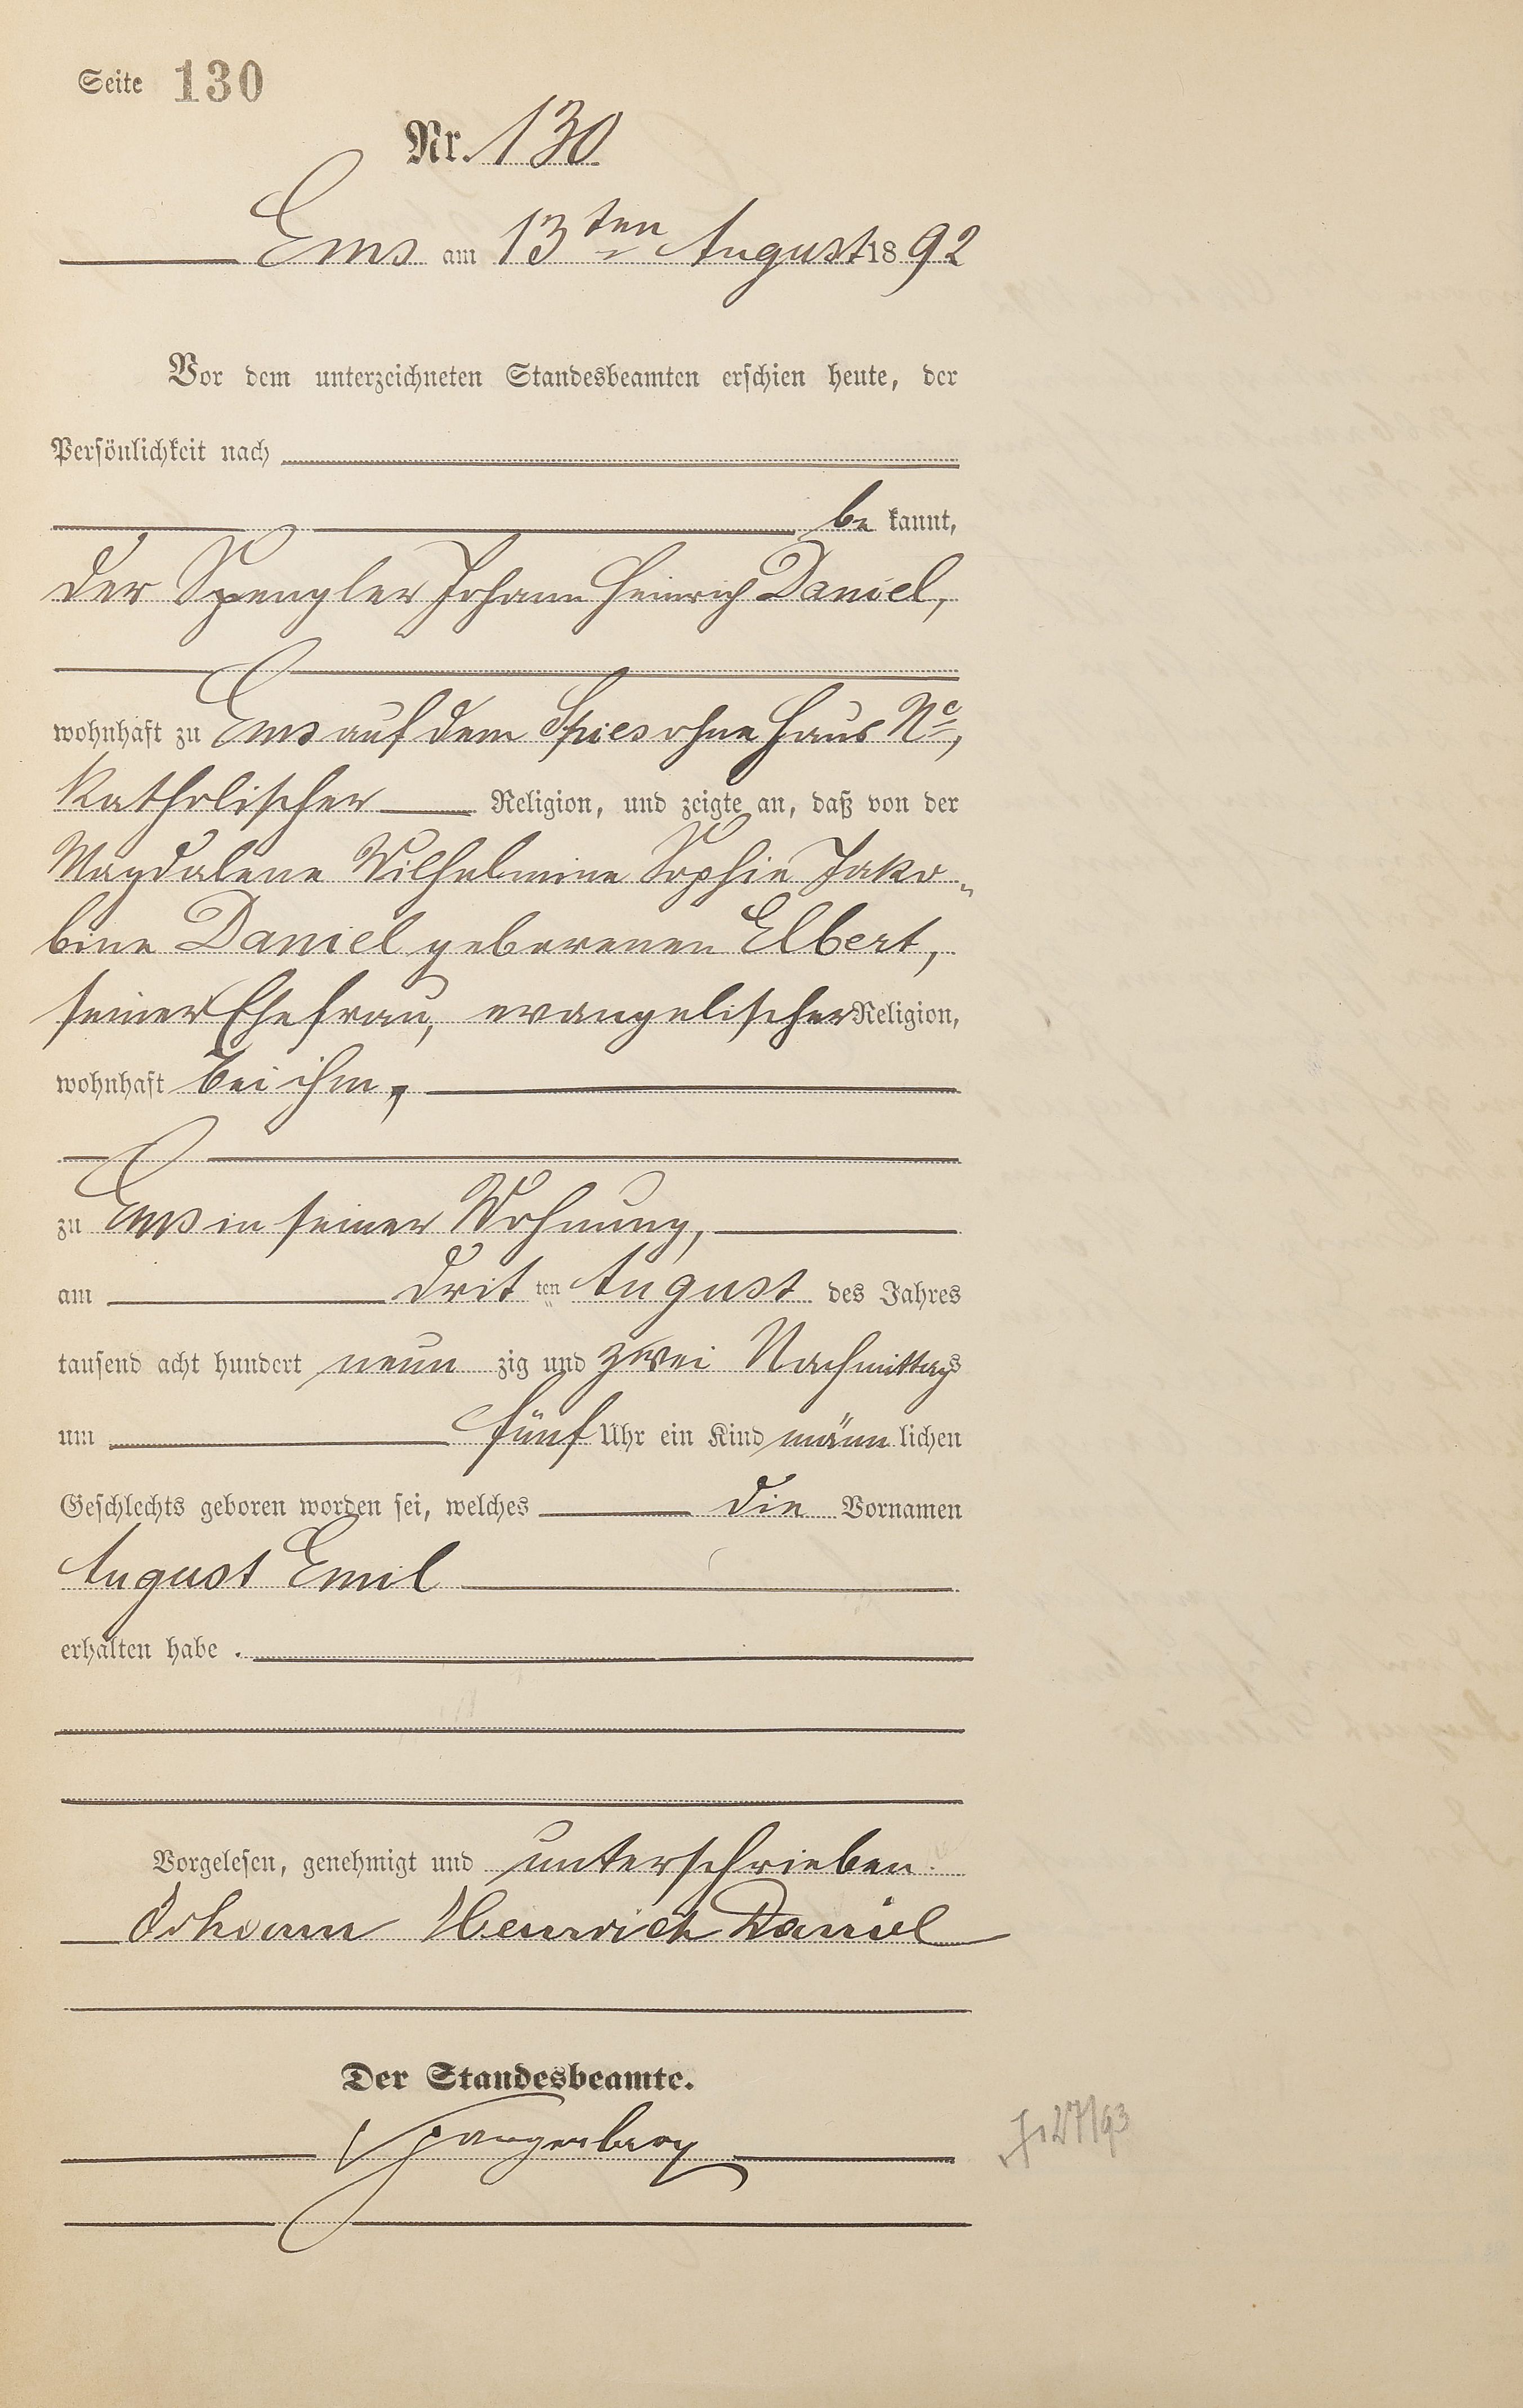 Seite 130
Nr. 130
Ems am 13ten August 1892
Vor dem unterzeichneten Standesbeamten erschien heute, der
Persönlichkeit nach
be kannt,
der Spengler Johann Heinrich Daniel,
wohnhaft zu Ems auf dem Spies ohne Haus No,
katholischer Religion, und zeigte an, daß von der
Magdalene Wilhelmine Sophie Jako-
bine Daniel geborenen Elbert,
seiner Ehefrau, evangelischer Religion,
wohnhaft bei ihm,
zu Ems in seiner Wohnung,
am dritten August des Jahres
tausend acht hundert neun zig und zwei Nachmittags
um fünf Uhr ein Kind männ lichen
Geschlechts geboren worden sei, welches die Vornamen
August Emil
erhalten habe.
Vorgelesen, genehmigt und unterschrieben.
Johann Heinrich Daniel
Der Standesbeamte.
Spangenberg